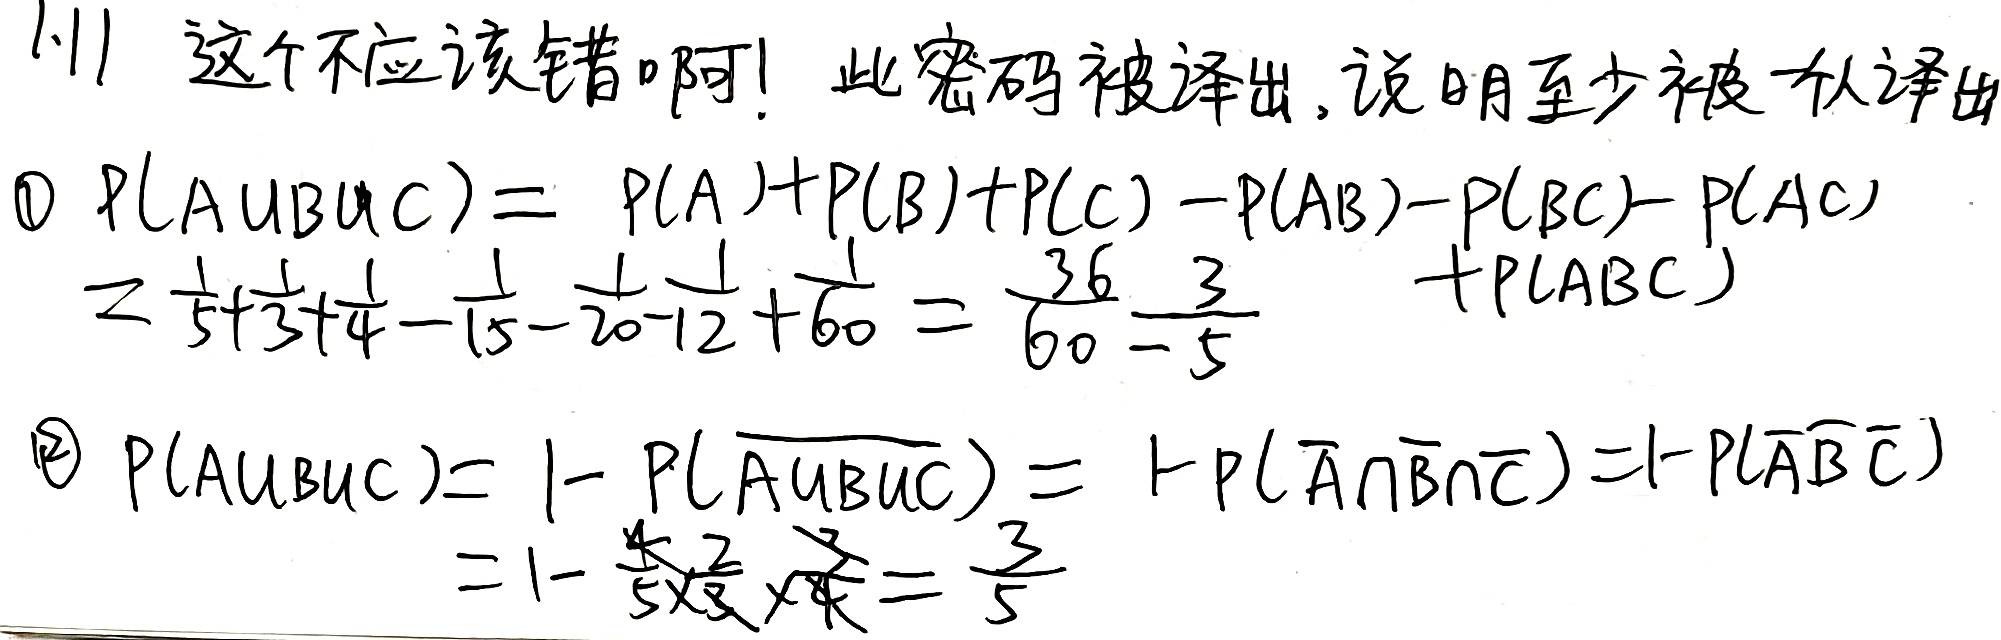 1.11 这个不应该错啊! 此密码被译出,说明至少被一个人译出
① P(A∪B∪C) = P(A)+P(B)+P(C)-P(AB)-P(BC)-P(AC)
+P(ABC)
= 1/5+1/3+1/4-1/15-1/20-1/12+1/60 = 36/60 = 3/5
② P(A∪B∪C) = 1-P(A̅∪̅B̅∪̅C̅) = 1-P(A̅∩B̅∩C̅) = 1-P(A̅B̅C̅)
= 1-4/5×2/3×3/4 = 3/5